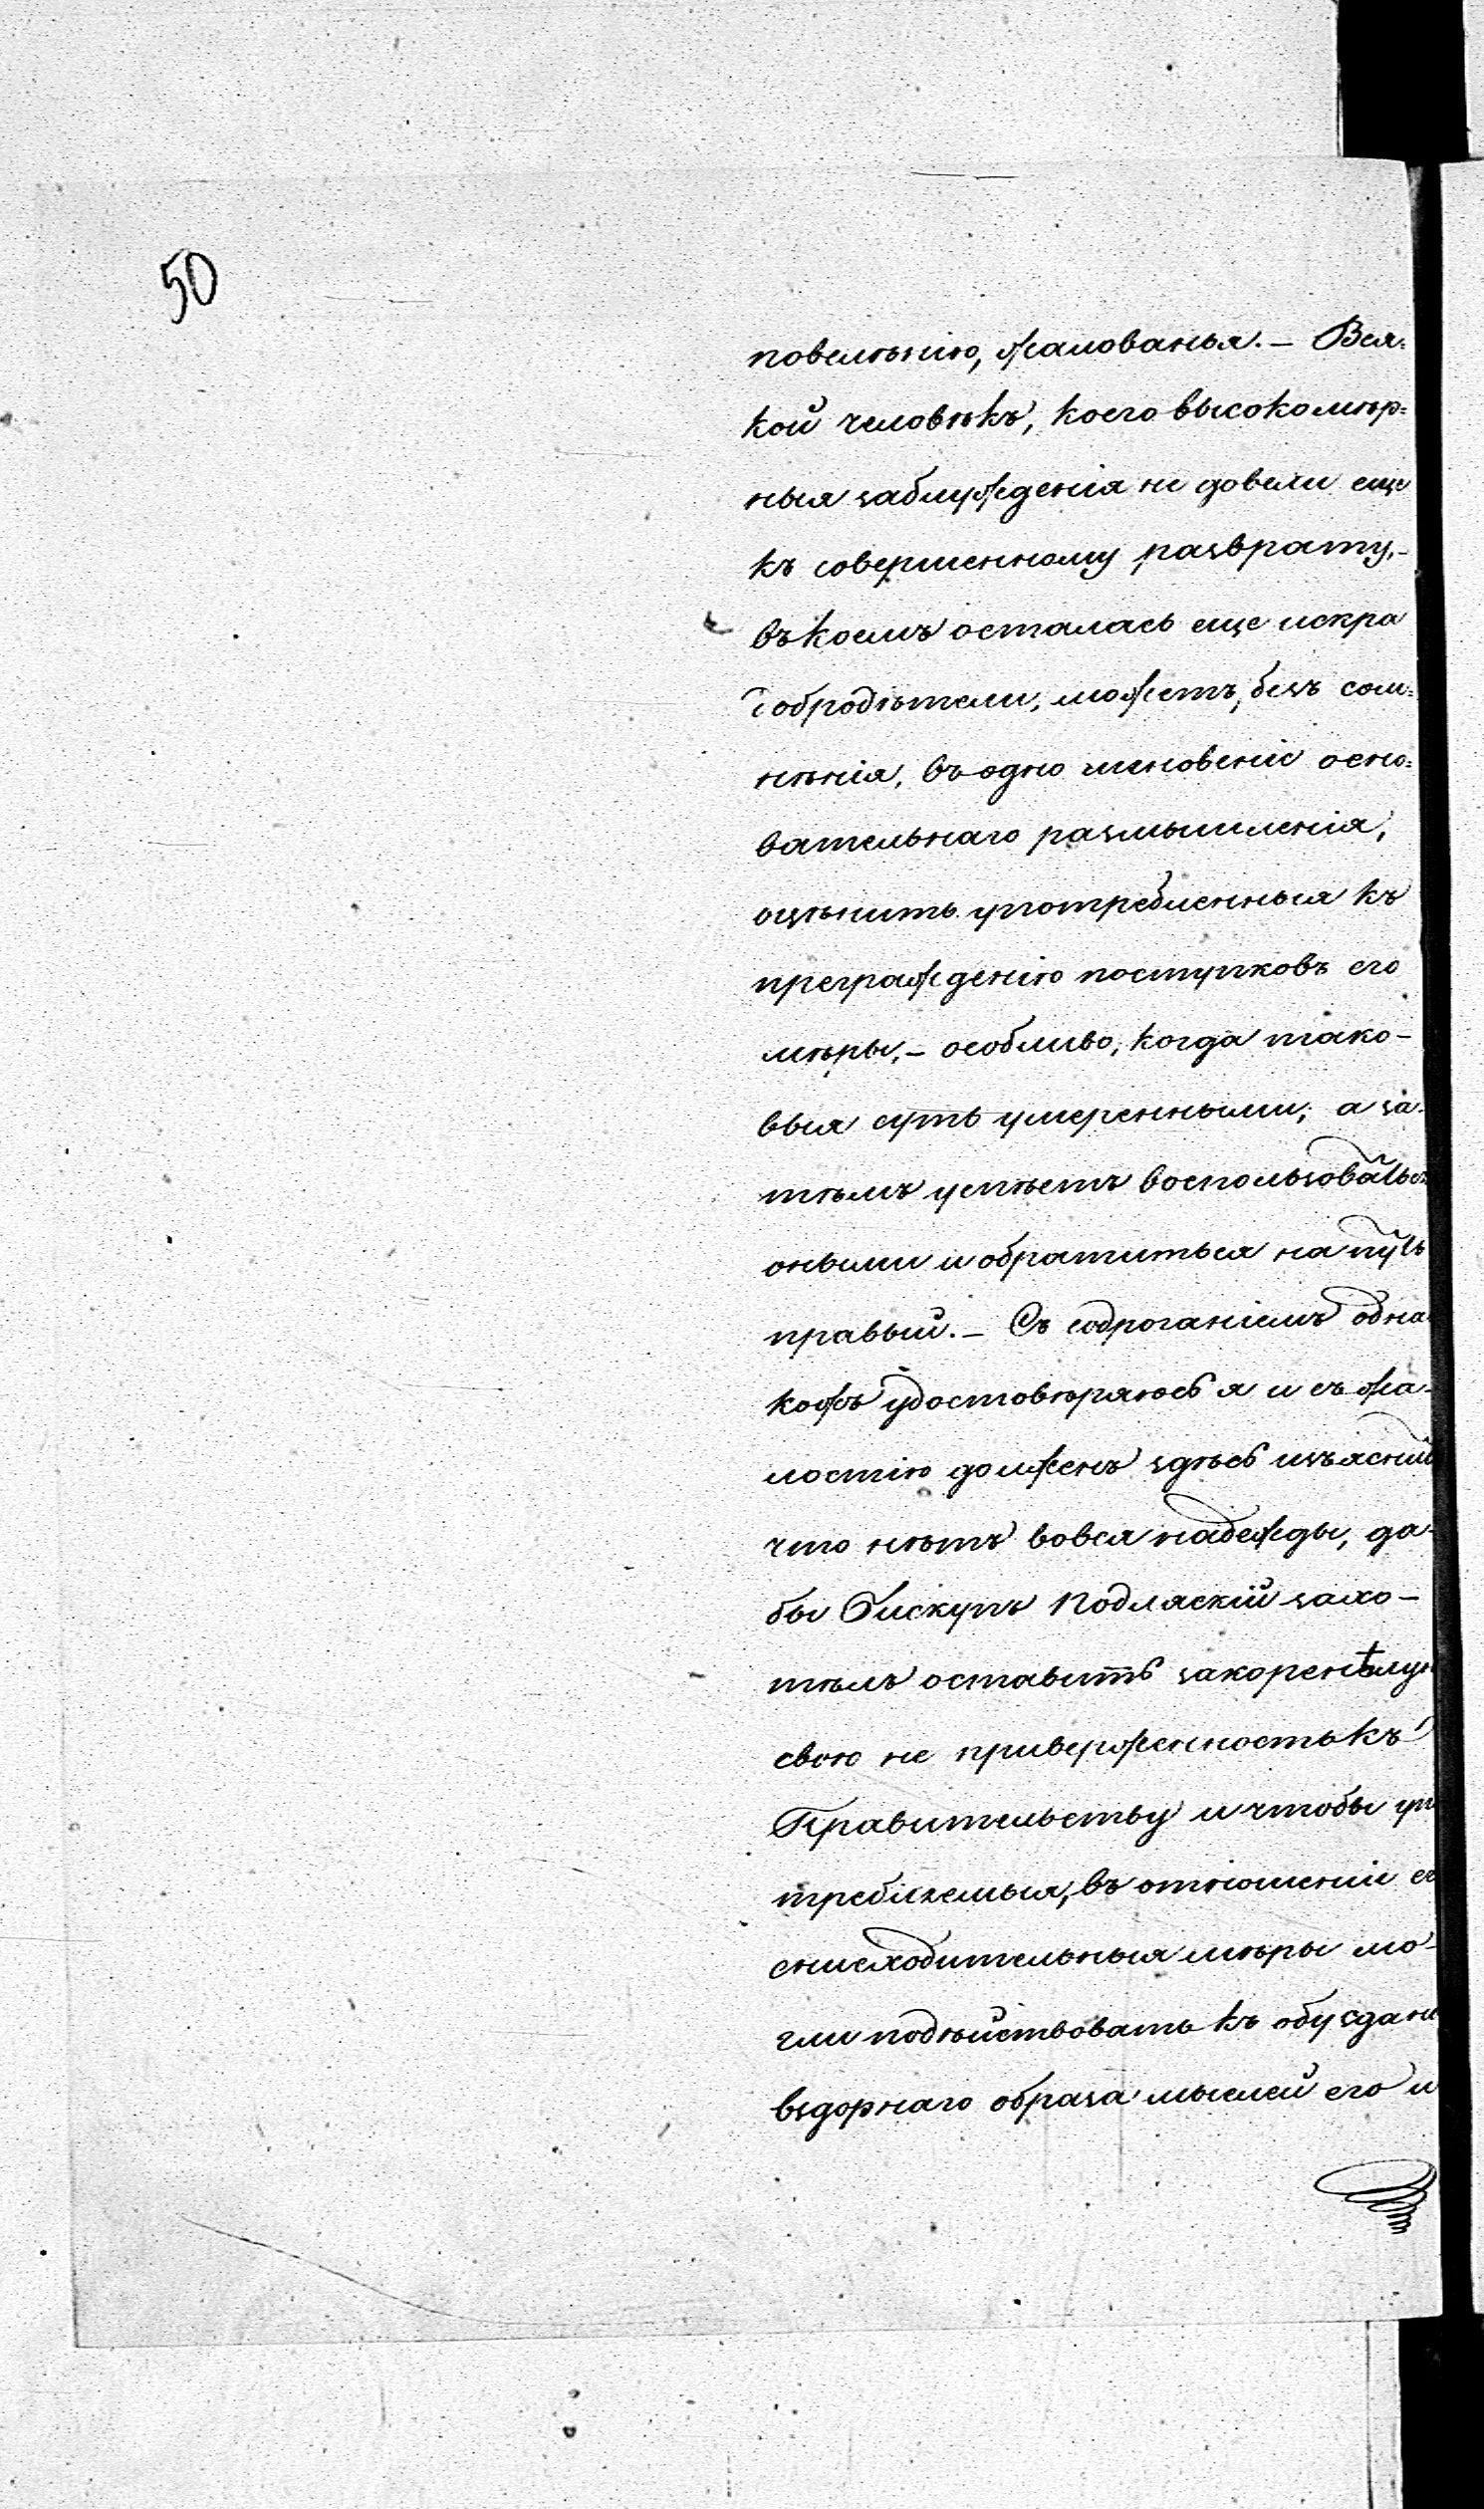 50
повелѣнію, жалованья. — Вся=
кой человѣкъ, коего высокомѣр=
ныя заблужденія не довели еще
къ совершенному разврату, –
въ коемъ осталась еще искра
добродѣтели, можетъ, безъ сом=
нѣнія, въ одно мгновеніе осно=
вательнаго размышленія,
оцѣнить употребленныя къ
прегражденію поступковъ его
мѣры, – особливо, когда тако –
выя суть умеренными; а за-
тѣмъ успѣетъ воспользоваться
оными и обратиться на путь
правый. — Съ содроганіемъ одна
кожъ удостовѣряюсь я и съ жа-
лостію долженъ здѣсь изъяснить
что нѣтъ вовся надежды, да-
бы Бискупъ Подляскій захо –
тѣлъ оставить закоренѣлую
свою не приверженность къ
Правительству и чтобы уп
требляемыя, въ отношеніи ег
снисходительныя мѣры мо-
гли подѣйствовать къ обуздані
вздорнаго образа мыслей его и